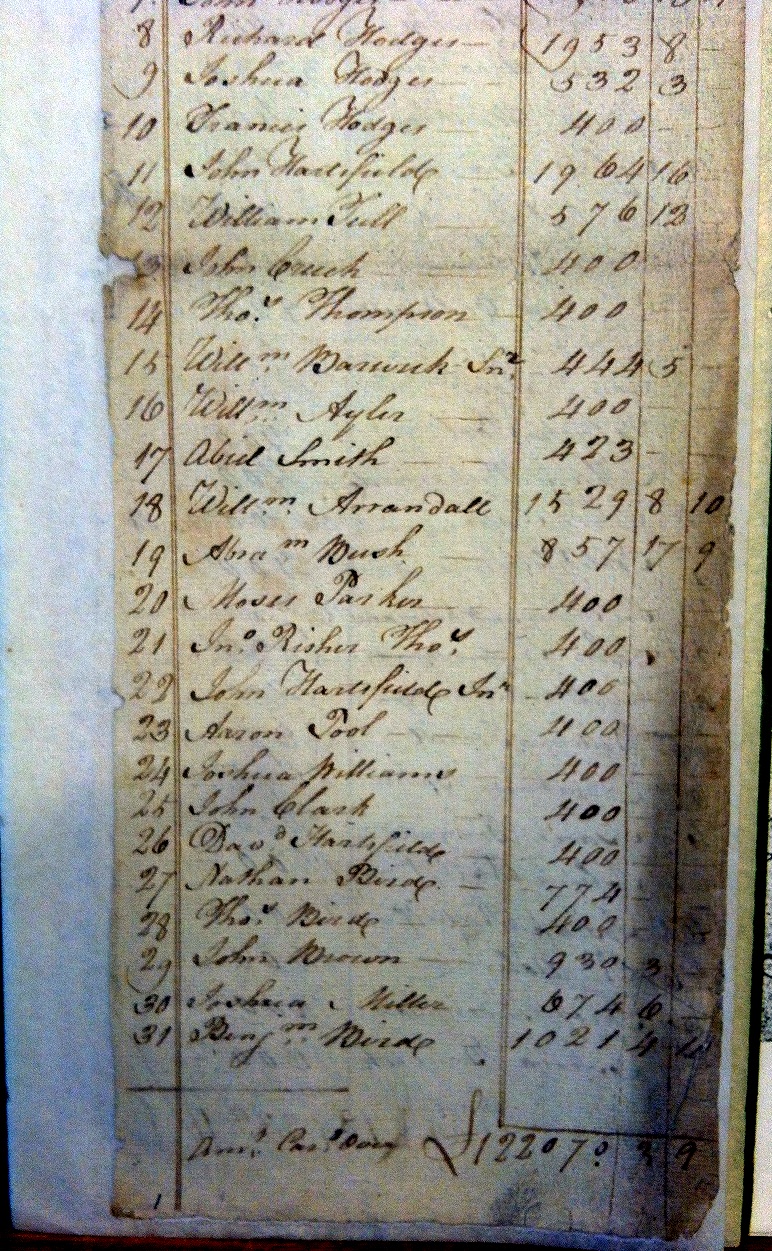 8 Richard Hodges 1953 8 -
9 Joshua Hodges 532 3
10 Francis Hodges 400 -
11 John Hartsfield 1964 16
12 William Tull 576 12
13 John Creech 400
14 Thos. Thompson 400
15 Willm. Barwick Snr. 444 5
16 Willm Ayler 400
17 Abiel Smith 423 -
18 Willm. Arrandall 1529 8 10
19 Abram Bush 857 17 9
20 Moses Parker 400
21 Jno. Risher Thos. 400
22 John Hartsfield Jnr 400
23 Aaron Tool 400
24 Joshua Williams 400
25 John Clark 400
26 Davd Hartsfield 400
27 Nathan Bird 774 -
28 Thos. Bird 400
29 John Brown 930 3
30 Joshua Miller 674 6
31 Benjm. Bird 1021 4
Amt. Card. Over £12207 3 9